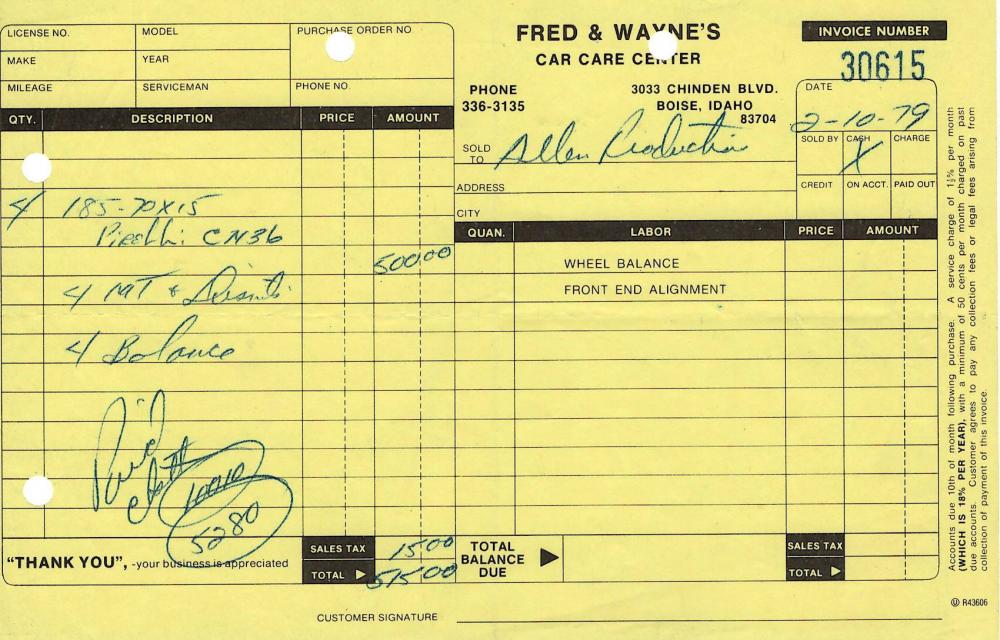 LICENSE NO. MODEL PURCHASE ORDER NO
MAKE YEAR
MILEAGE SERVICEMAN PHONE NO.
FRED & WAYNE'S
CAR CARE CENTER
PHONE
336-3135
3033 CHINDEN BLVD.
BOISE, IDAHO
83704
INVOICE NUMBER
30615
DATE
2-10-79
SOLD TO Allen Production
SOLD BY CASH CHARGE
X
ADDRESS
CREDIT ON ACCT. PAID OUT
CITY
QTY. DESCRIPTION PRICE AMOUNT
4 185-70X15
Pirelli CN36
500 00
4 MT &
4 Balance
Paid
10010
5280
QUAN. LABOR PRICE AMOUNT
WHEEL BALANCE
FRONT END ALIGNMENT
"THANK YOU", -your business is appreciated
SALES TAX 15 00
TOTAL 515 00
TOTAL BALANCE DUE
SALES TAX
TOTAL
CUSTOMER SIGNATURE
Accounts due 10th of month following purchase. A service charge of 1½% per month
(WHICH IS 18% PER YEAR), with a minimum of 50 cents per month charged on past
due accounts. Customer agrees to pay any collection fees or legal fees arising from
collection of payment of this invoice.
R43606